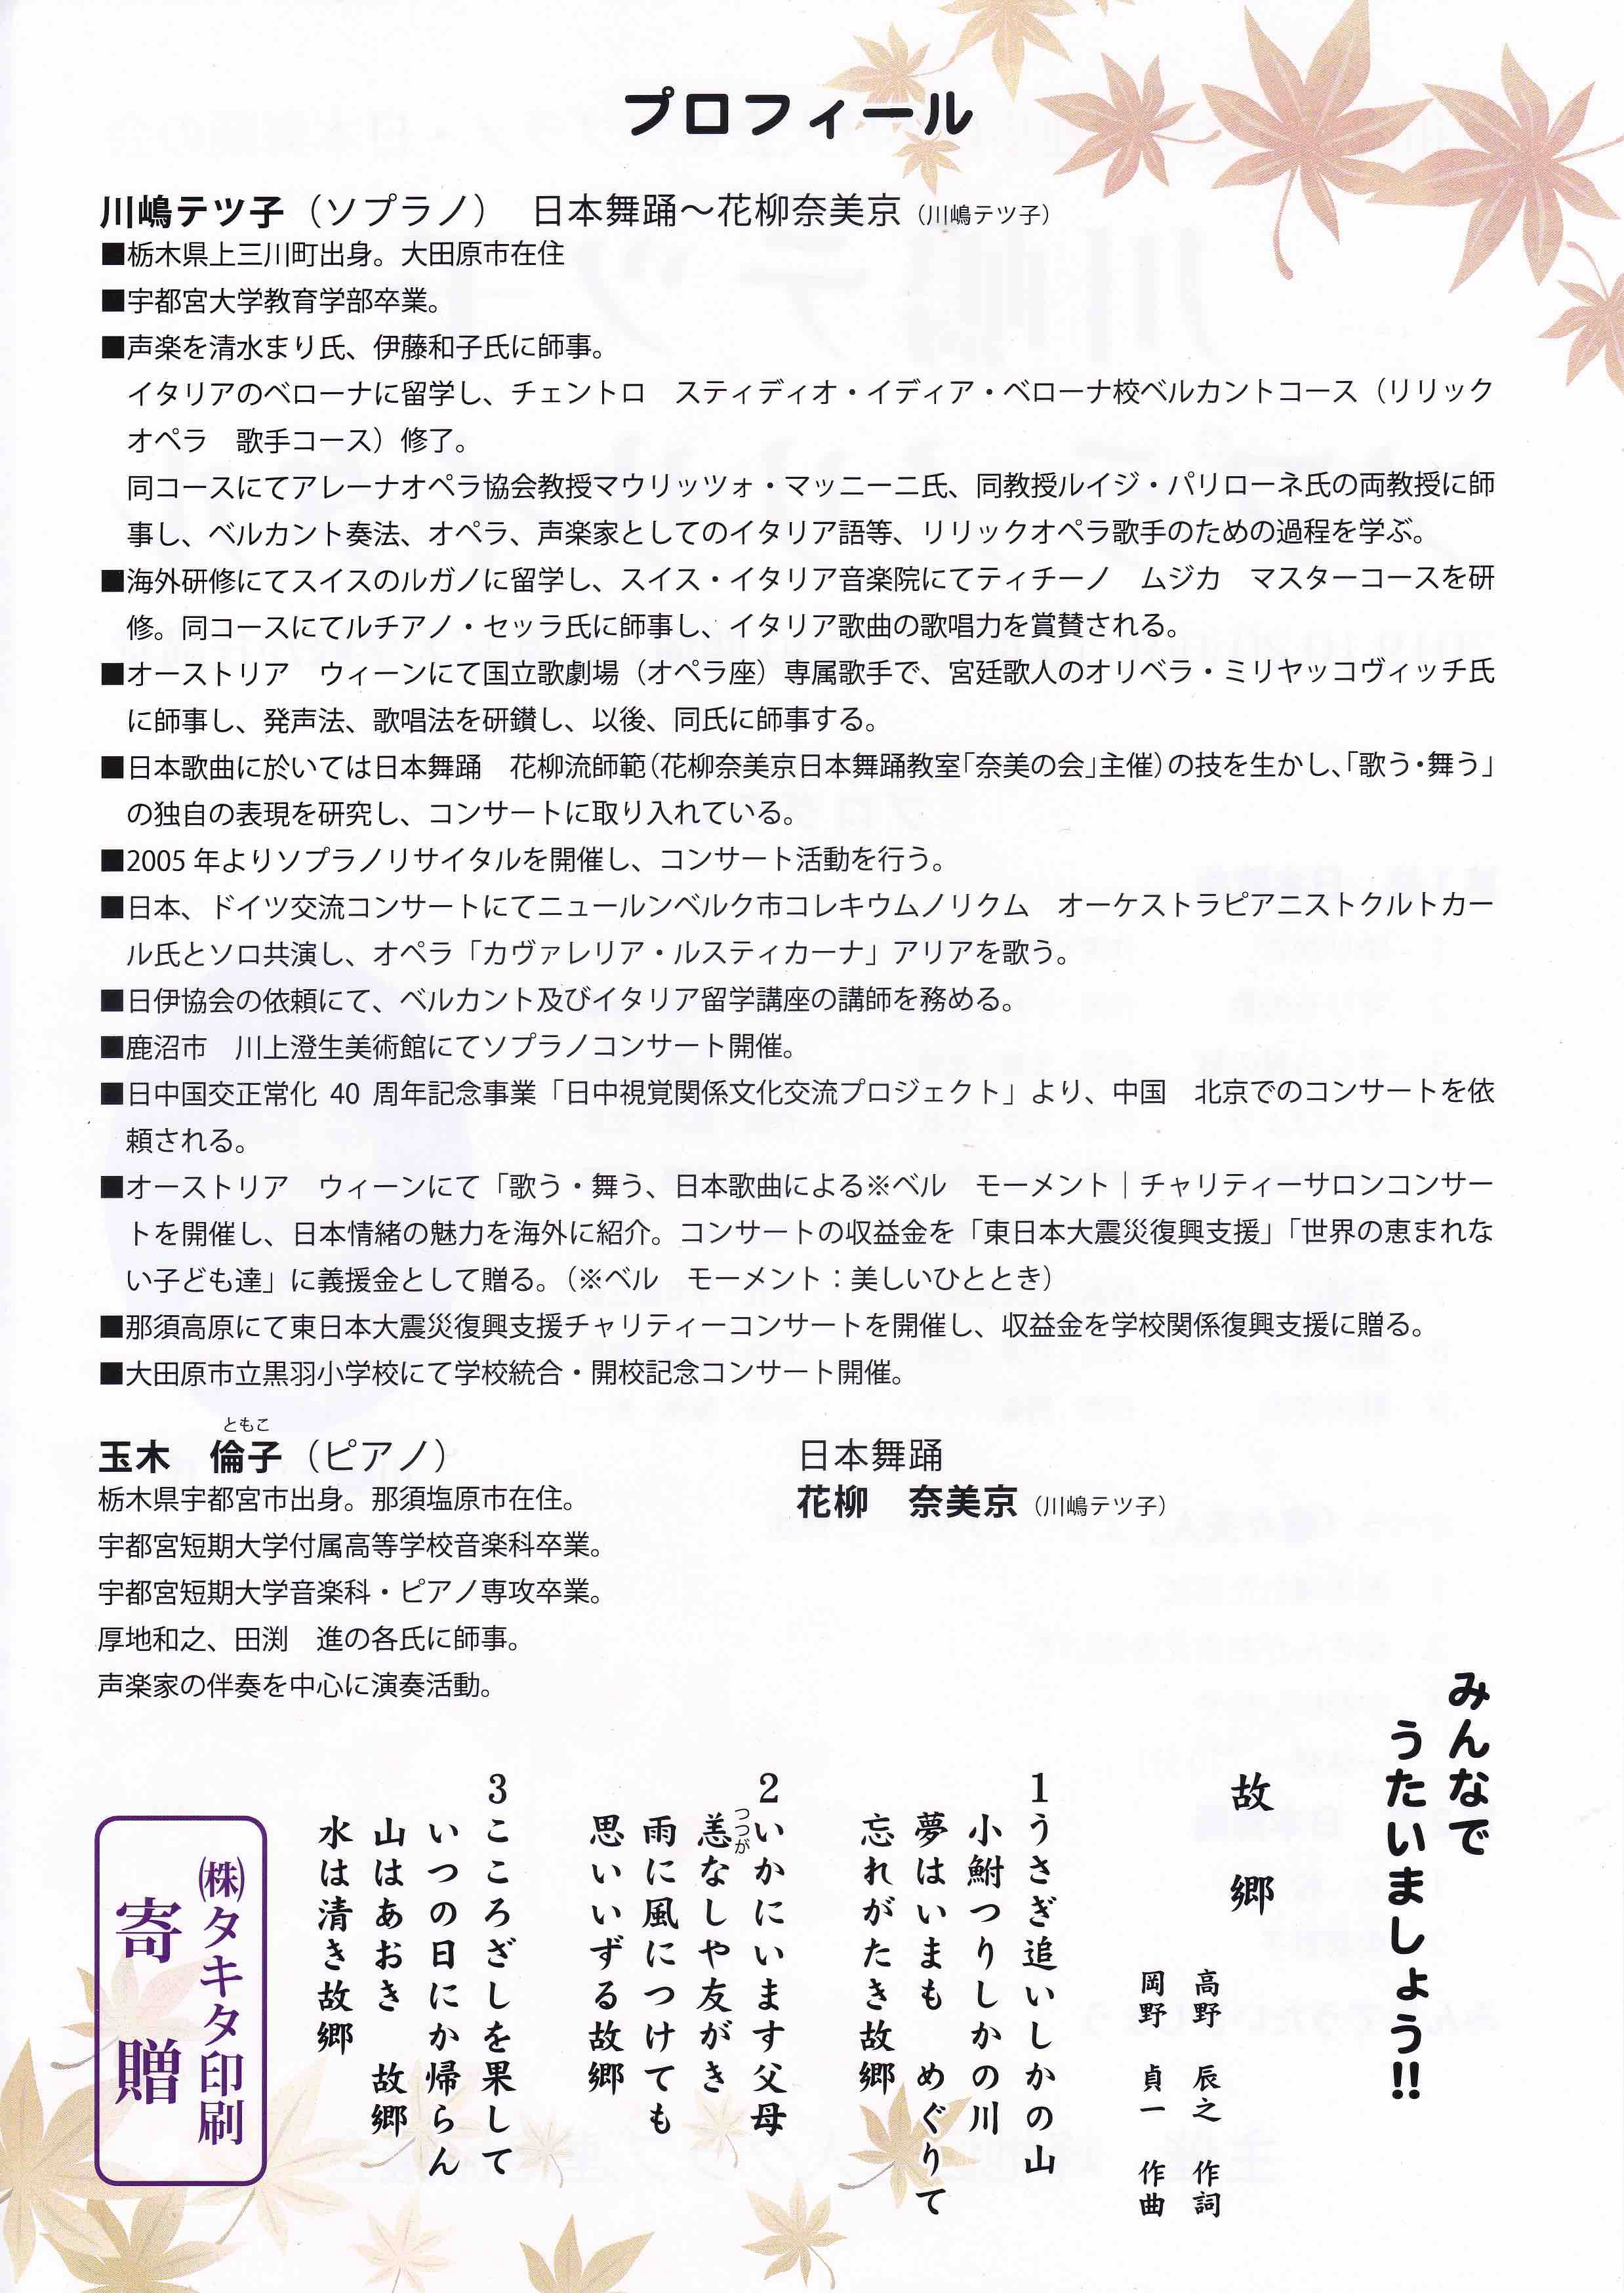 プロフィール
川嶋テツ子（ソプラノ）　日本舞踊～花柳奈美京（川嶋テツ子）
■栃木県上三川町出身。大田原市在住
■宇都宮大学教育学部卒業。
■声楽を清水まり氏、伊藤和子氏に師事。
イタリアのベローナに留学し、チェントロ　スティディオ・イディア・ベローナ校ベルカントコース（リリック
オペラ　歌手コース）修了。
同コースにてアレーナオペラ協会教授マウリッツォ・マッニーニ氏、同教授ルイジ・パリローネ氏の両教授に師
事し、ベルカント奏法、オペラ、声楽家としてのイタリア語等、リリックオペラ歌手のための過程を学ぶ。
■海外研修にてスイスのルガノに留学し、スイス・イタリア音楽院にてティチーノ　ムジカ　マスターコースを研
修。同コースにてルチアノ・セッラ氏に師事し、イタリア歌曲の歌唱力を賞賛される。
■オーストリア　ウィーンにて国立歌劇場（オペラ座）専属歌手で、宮廷歌人のオリベラ・ミリヤッコヴィッチ氏
に師事し、発声法、歌唱法を研鑚し、以後、同氏に師事する。
■日本歌曲に於いては日本舞踊　花柳流師範（花柳奈美京日本舞踊教室「奈美の会」主催）の技を生かし、「歌う・舞う」
の独自の表現を研究し、コンサートに取り入れている。
■2005 年よりソプラノリサイタルを開催し、コンサート活動を行う。
■日本、ドイツ交流コンサートにてニュールンベルク市コレキウムノリクム　オーケストラピアニストクルトカー
ル氏とソロ共演し、オペラ「カヴァレリア・ルスティカーナ」アリアを歌う。
■日伊協会の依頼にて、ベルカント及びイタリア留学講座の講師を務める。
■鹿沼市　川上澄生美術館にてソプラノコンサート開催。
■日中国交正常化 40 周年記念事業「日中視覚関係文化交流プロジェクト」より、中国　北京でのコンサートを依
頼される。
■オーストリア　ウィーンにて「歌う・舞う、日本歌曲による※ベル　モーメント｜チャリティーサロンコンサー
トを開催し、日本情緒の魅力を海外に紹介。コンサートの収益金を「東日本大震災復興支援」「世界の恵まれな
い子ども達」に義援金として贈る。（※ベル　モーメント：美しいひととき）
■那須高原にて東日本大震災復興支援チャリティーコンサートを開催し、収益金を学校関係復興支援に贈る。
■大田原市立黒羽小学校にて学校統合・開校記念コンサート開催。
ともこ
玉木　倫子（ピアノ）
栃木県宇都宮市出身。那須塩原市在住。
宇都宮短期大学付属高等学校音楽科卒業。
宇都宮短期大学音楽科・ピアノ専攻卒業。
厚地和之、田渕　進の各氏に師事。
声楽家の伴奏を中心に演奏活動。
日本舞踊
花柳　奈美京（川嶋テツ子）
みんなで
うたいましょう!!
故　郷
高野　辰之　作詞
岡野　貞一　作曲
1うさぎ追いしかの山
小鮒つりしかの川
夢はいまも　めぐりて
忘れがたき故郷
2いかにいます父母
つつが
恙なしや友がき
雨に風につけても
思いいずる故郷
3こころざしを果して
いつの日にか帰らん
山はあおき　故郷
水は清き故郷
㈱タキタ印刷
寄　贈